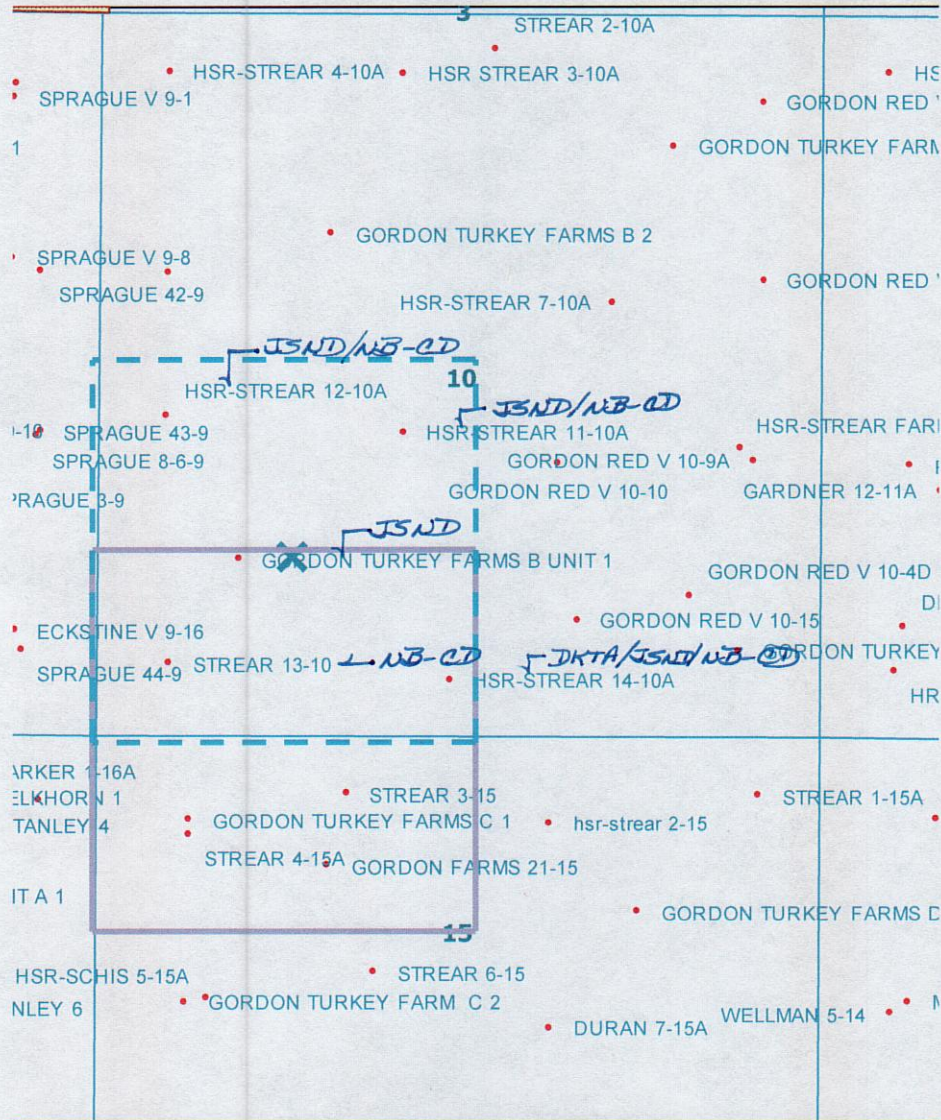 3
STREAR 2-10A
HSR-STREAR 4-10A
HSR STREAR 3-10A
HS
SPRAGUE V 9-1
GORDON RED V
1
GORDON TURKEY FARM
GORDON TURKEY FARMS B 2
SPRAGUE V 9-8
SPRAGUE 42-9
GORDON RED V
HSR-STREAR 7-10A
JSND/NB-CD
10
HSR-STREAR 12-10A
JSND/NB-CD
SPRAGUE 43-9
HSR-STREAR 11-10A
HSR-STREAR FAR
SPRAGUE 8-6-9
GORDON RED V 10-9A
PRAGUE 3-9
GORDON RED V 10-10
GARDNER 12-11A
JSND
GORDON TURKEY FARMS B UNIT 1
GORDON RED V 10-4D
ECKSTINE V 9-16
GORDON RED V 10-15
SPRAGUE 44-9
STREAR 13-10
NB-CD
DKTA/JSND/NB-CD
GORDON TURKEY
HSR-STREAR 14-10A
HR
ARKER 1-16A
ELKHORN 1
STREAR 3-15
STREAR 1-15A
TANLEY 4
GORDON TURKEY FARMS C 1
hsr-strear 2-15
STREAR 4-15A
GORDON FARMS 21-15
IT A 1
GORDON TURKEY FARMS D
15
HSR-SCHIS 5-15A
STREAR 6-15
NLEY 6
GORDON TURKEY FARM C 2
DURAN 7-15A
WELLMAN 5-14